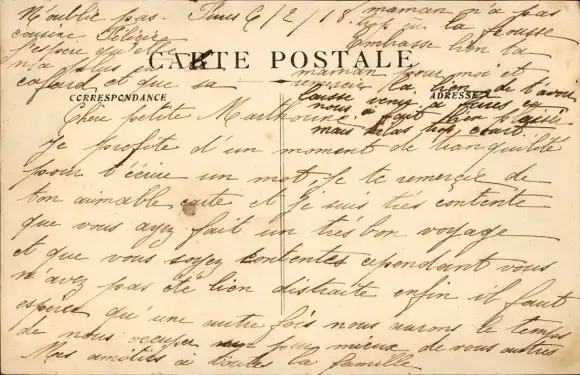 N'oublie pas. Paris 6/2/18 maman n'a pas
cousine trop eu la frousse
J'espère qu'elle Embrasse bien ta
n'a plus eu
CARTE POSTALE
cafard et que sa maman pour moi et
remercie la bien de t'avoir
CORRESPONDANCE ADRESSE
laissé venir a
Chère petite fait bien plaisir
mais hélas trop court
Je profite d'un moment de tranquilité
pour t'écrire un mot. Je te remercie de
ton aimable carte et je suis très contente
que vous ayez fait un très bon voyage
et que vous soyez contentes cependant vous
n'avez pas été bien distraite enfin il faut
espérer qu'une autre fois nous aurons le temps
de nous occuper pour mieux de vous autres
Mes amitiés à toutes la famille